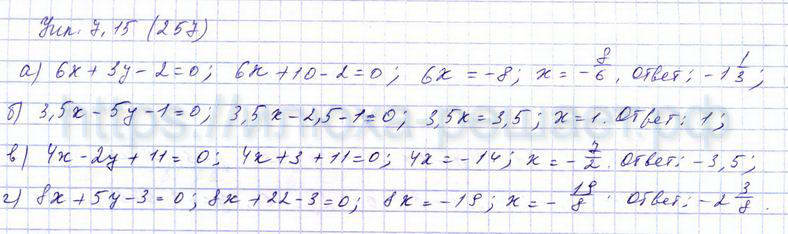 Упр. 7.15 (257)
а) 6x + 3y - 2 = 0; 6x + 10 - 2 = 0; 6x = -8; x = -8/6. Ответ: -1 1/3;
б) 3,5x - 5y - 1 = 0; 3,5x - 2,5 - 1 = 0; 3,5x = 3,5; x = 1. Ответ: 1;
в) 4x - 2y + 11 = 0; 4x + 3 + 11 = 0; 4x = -14; x = -7/2. Ответ: -3,5;
г) 8x + 5y - 3 = 0; 8x + 22 - 3 = 0; 8x = -19; x = -19/8. Ответ: -2 3/8.